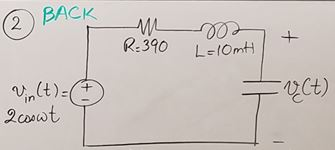 ② BACK
R=390
L=10mH
+
v_in(t)=
2cosωt
+
-
v_c(t)
-